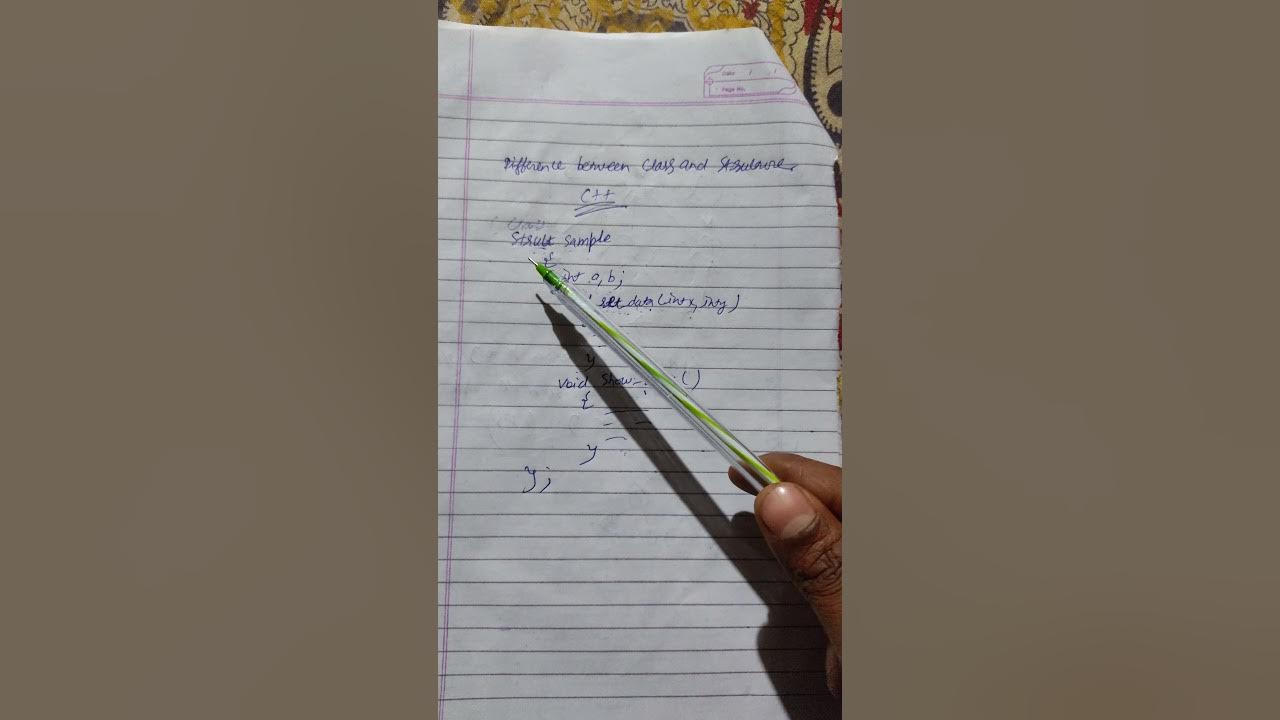 Date / /
Page No.
Difference between Class and Structure.
C++
Class
Struct Sample
{
int a, b;
set data (int x, int y)
}
void Show ()
{
}
};